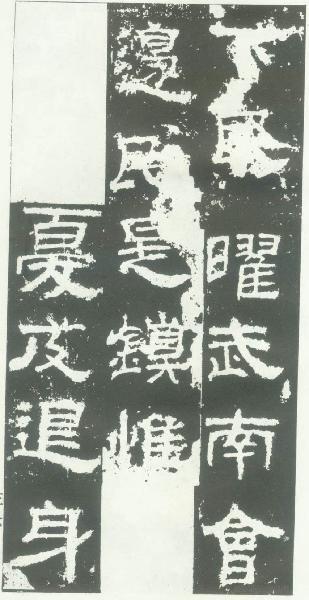 下邳曜武南會
邊民是鎮惟
憂及退身